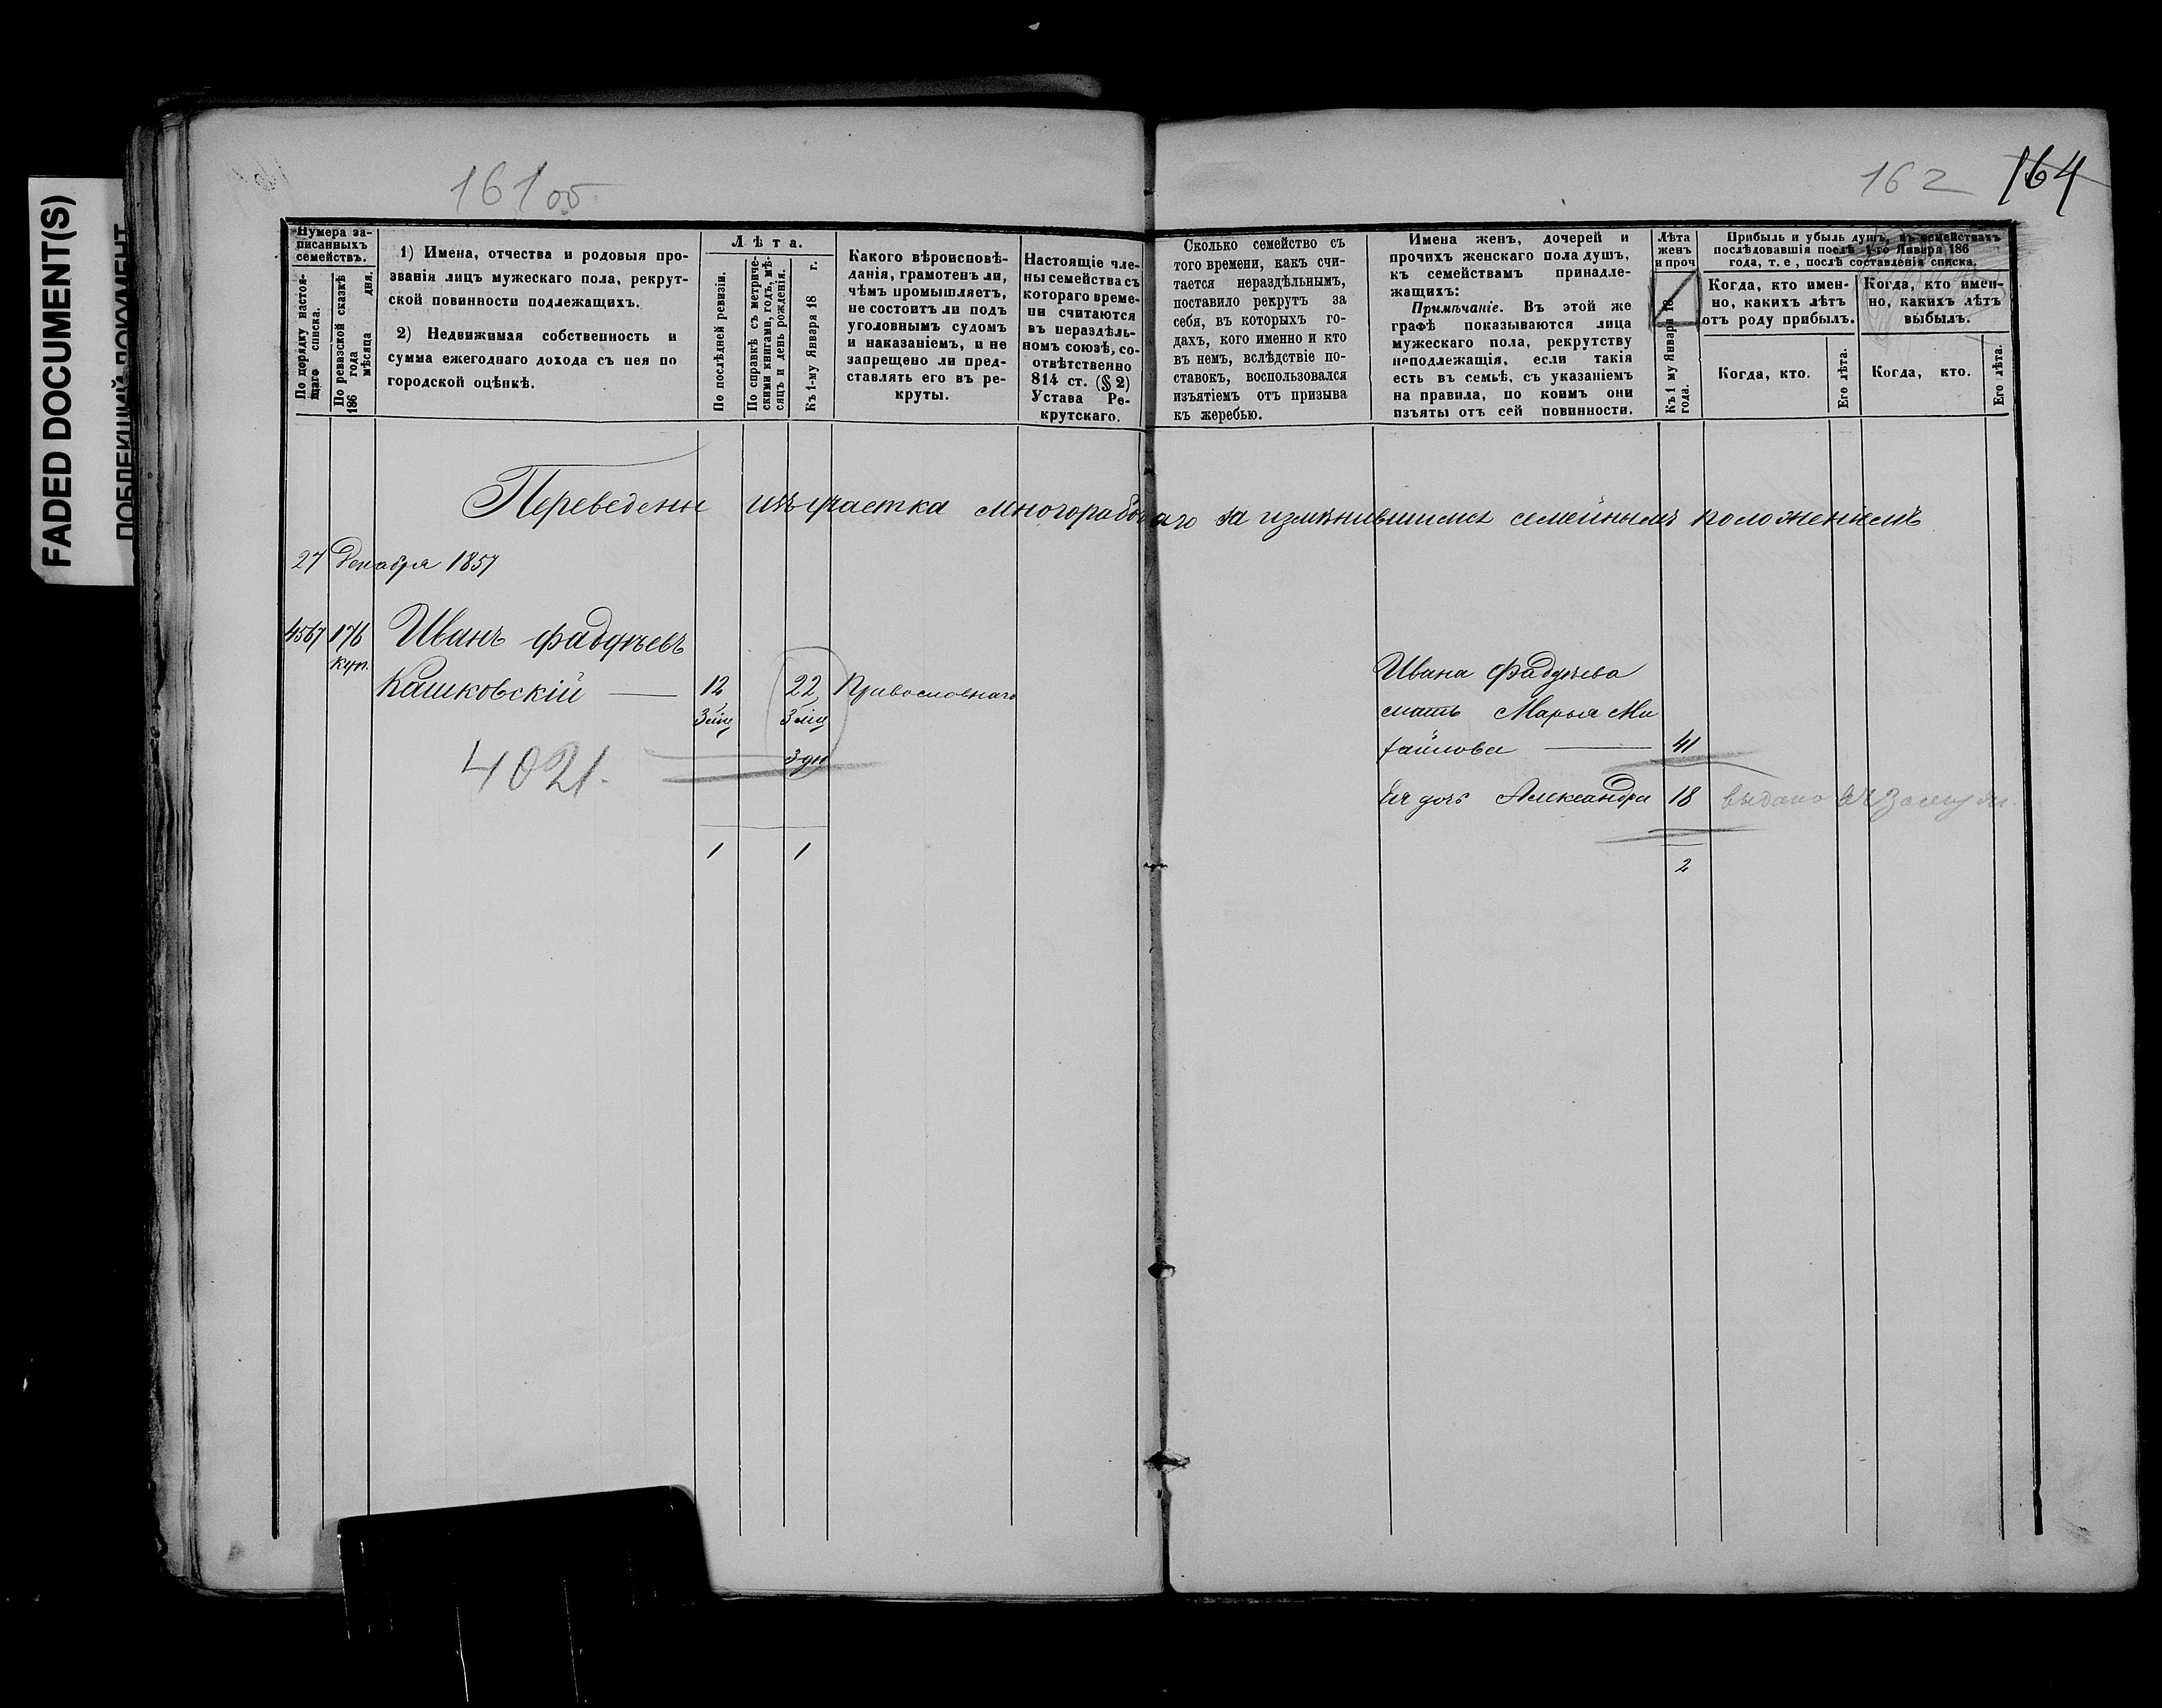 FADED DOCUMENT(S)
161 об
162 164
Нумера за-
писанныхъ
семействъ.
По порядку настоя-
щаго списка.
По ревизской сказкѣ
186 года
мѣсяца дня.
1) Имена, отчества и родовыя про-
званія лицъ мужескаго пола, рекрут-
ской повинности подлежащихъ.
2) Недвижимая собственность и
сумма ежегоднаго дохода съ нея по
городской оцѣнкѣ.
Лѣта.
По послѣдней ревизіи.
По справкѣ съ метриче-
скими книгами, годъ, мѣ-
сяцъ и день рожденія.
Къ 1-му Января 18 г.
Какого вѣроисповѣ-
данія, грамотенъ ли,
чѣмъ промышляетъ,
не состоитъ ли подъ
уголовнымъ судомъ
и наказаніемъ, и не
запрещено ли пред-
ставлять его въ ре-
круты.
Настоящіе чле-
ны семейства съ
котораго време-
ни считаются
въ нераздѣль-
номъ союзѣ, со-
отвѣтственно
814 ст. (§ 2)
Устава Ре-
крутскаго.
Сколько семейство съ
того времени, какъ счи-
тается нераздѣльнымъ,
поставило рекрутъ за
себя, въ которыхъ го-
дахъ, кого именно и кто
въ немъ, вслѣдствіе по-
ставокъ, воспользовался
изъятіемъ отъ призыва
къ жеребью.
Имена женъ, дочерей и
прочихъ женскаго пола душъ,
къ семействамъ принадле-
жащихъ:
Примѣчаніе. Въ этой же
графѣ показываются лица
мужескаго пола, рекрутству
неподлежащія, если такія
есть въ семьѣ, съ указаніемъ
на правила, по коимъ они
изъяты отъ сей повинности.
Лѣта
женъ
и проч
Къ 1 му Января 18
года.
Прибыль и убыль душъ, въ семействахъ
послѣдовавшія послѣ 1-го Января 186
года, т. е, послѣ составленія списка.
Когда, кто имен-
но, какихъ лѣтъ
отъ роду прибылъ.
Когда, кто имен-
но, какихъ лѣтъ
выбылъ.
Когда, кто.
Его лѣта.
Когда, кто.
Его лѣта.
Переведены изъ участка многорабочаго за измѣнившимся семейнымъ положеніемъ
27 Декабря 1857
4567 176 Иванъ Фаддѣевъ
куп.
Кашковскій — 12 22 Православнаго
3 мѣц 3 мѣц
4021. 3 дн
1 1
Ивана Фаддѣева
мать Марья Ми
хайлова — 41
Ея дочь Александра 18 выдана въ замуж.
2